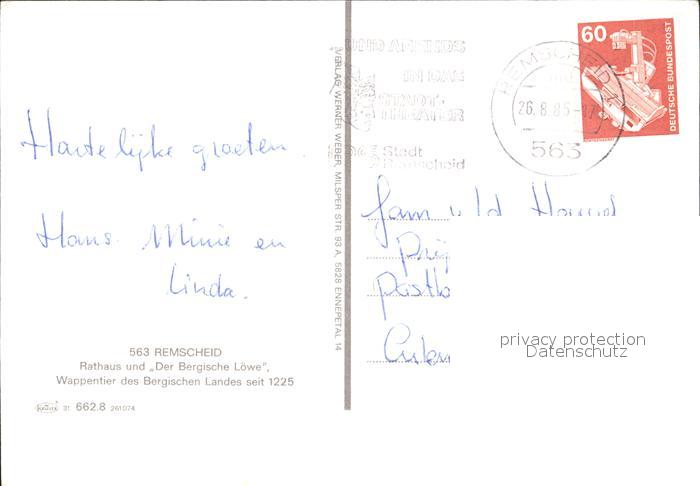 Hartelijke groeten.
Hans Minie en
Linda.
563 REMSCHEID
Rathaus und „Der Bergische Löwe",
Wappentier des Bergischen Landes seit 1225
KRÜGER 31 662.8 261074
VERLAG WERNER WEBER, MILSPER STR. 93 A, 5828 ENNEPETAL 14
UND ABENDS
IN DAS
STADT-
THEATER
Stadt
Remscheid
REMSCHEID 1
26.8.85-17
563
60
DEUTSCHE BUNDESPOST
Fam
privacy protection
Datenschutz